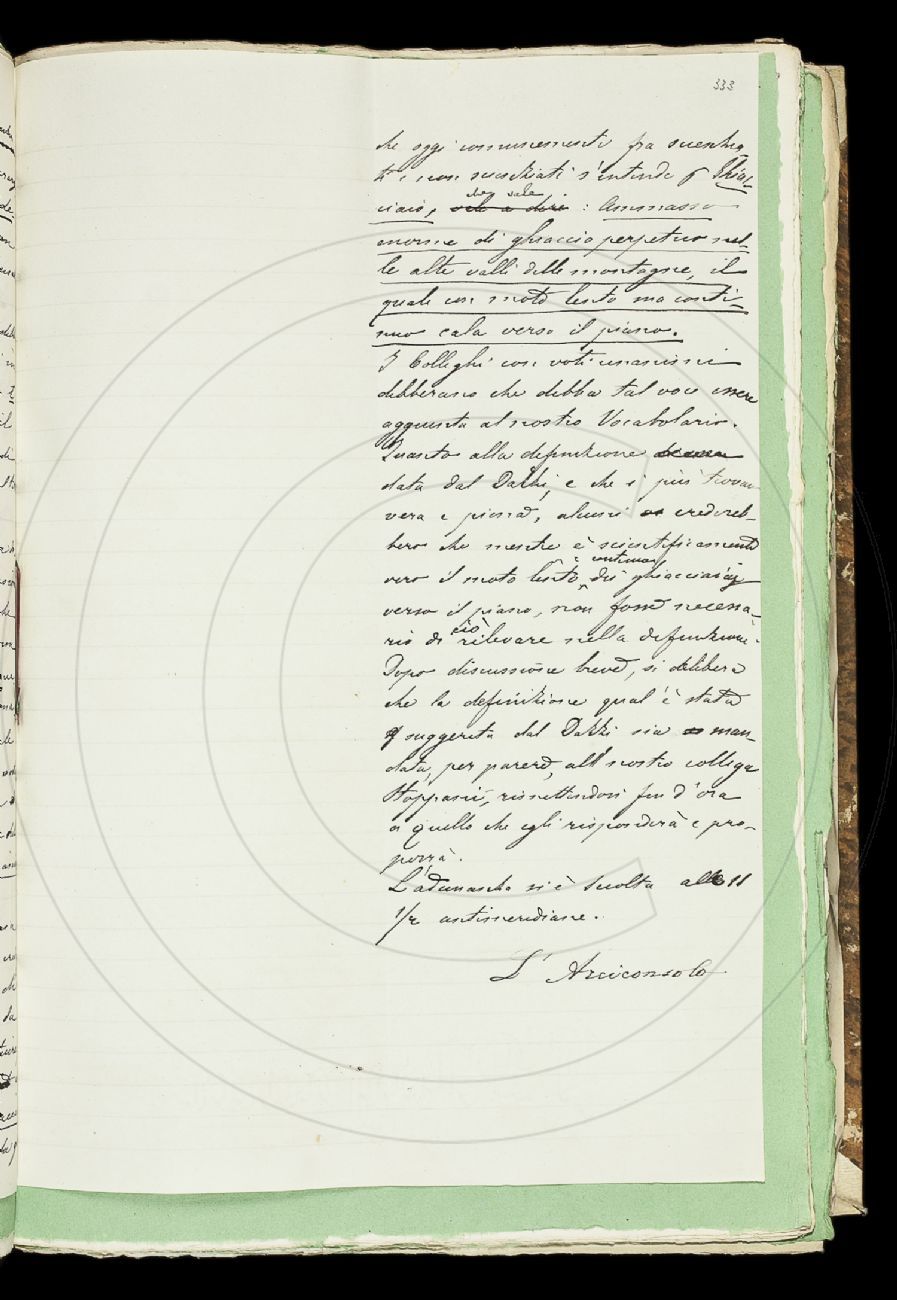 333
che oggi comunemente fra scienzia
ti e non scienziati s'intende p Ghiac-
ciaio, : Ammasso
enorme di ghiaccio perpetuo nel-
le alte valli delle montagne, il
quale con moto lento ma conti-
nuo cala verso il piano.
I Colleghi con voti unanimi
deliberano che debba tal voce essere
aggiunta al nostro Vocabolario.
Quanto alla definizione
data dal Dazzi, e che è più trovar
vera e piena, alcuni credereb-
bero che mentre è scientificamente
e continuo
vero il moto lento dei ghiacciai
verso il piano, non fosse necessa-
ciò
rio di rilevare nella definizione.
Dopo discussione breve, si delibera
che la definizione qual'è stata
suggerita dal Dazzi sia man-
data, per parere, all'nostro collega
Stoppani, rimettendosi fin d'ora
a quello che egli risponderà e pro-
porrà.
L'adunanza si è sciolta alle 11
1/2 antimeridiane.
L'Arciconsolo